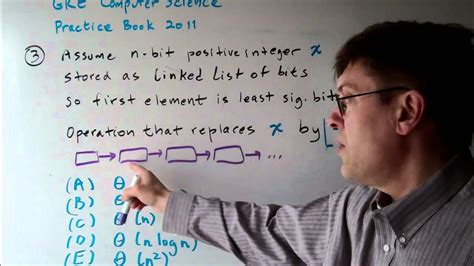 GRE Computer Science
Practice Book 2011
③ Assume n-bit positive integer x
stored as linked list of bits
so first element is least sig. bit
Operation that replaces x by ⌊
...
(A) Θ
(B) Θ
(C) Θ (n)
(D) Θ (n log n)
(E) Θ (n²)